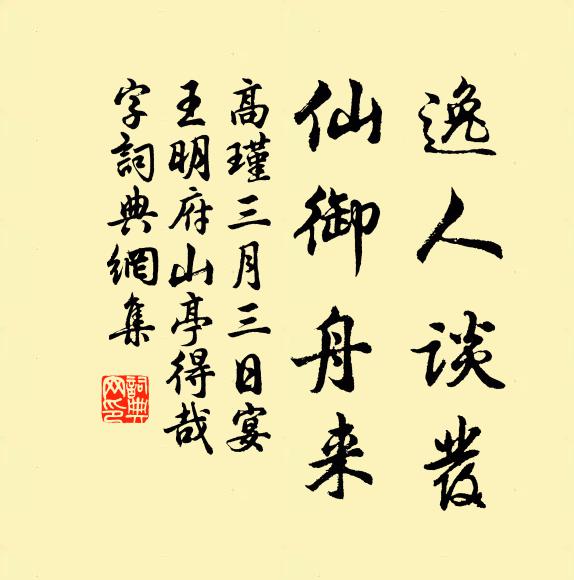 逸人談發
仙御舟来
高瑾三月三日宴
王明府山亭得哉
字詞典網集
詞典
网印